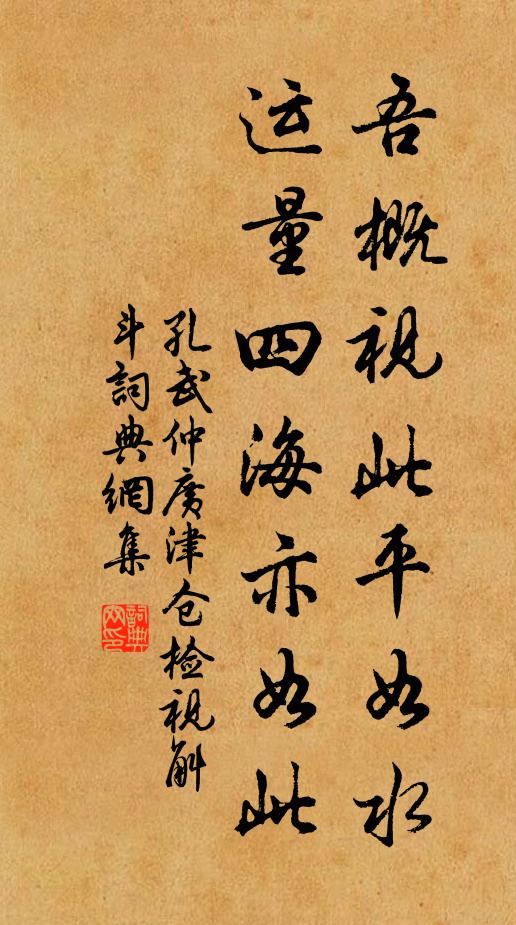 吾概视此平如水
运量四海亦如此
孔武仲廣津仓检视斛
斗詞典網集
詞典网印